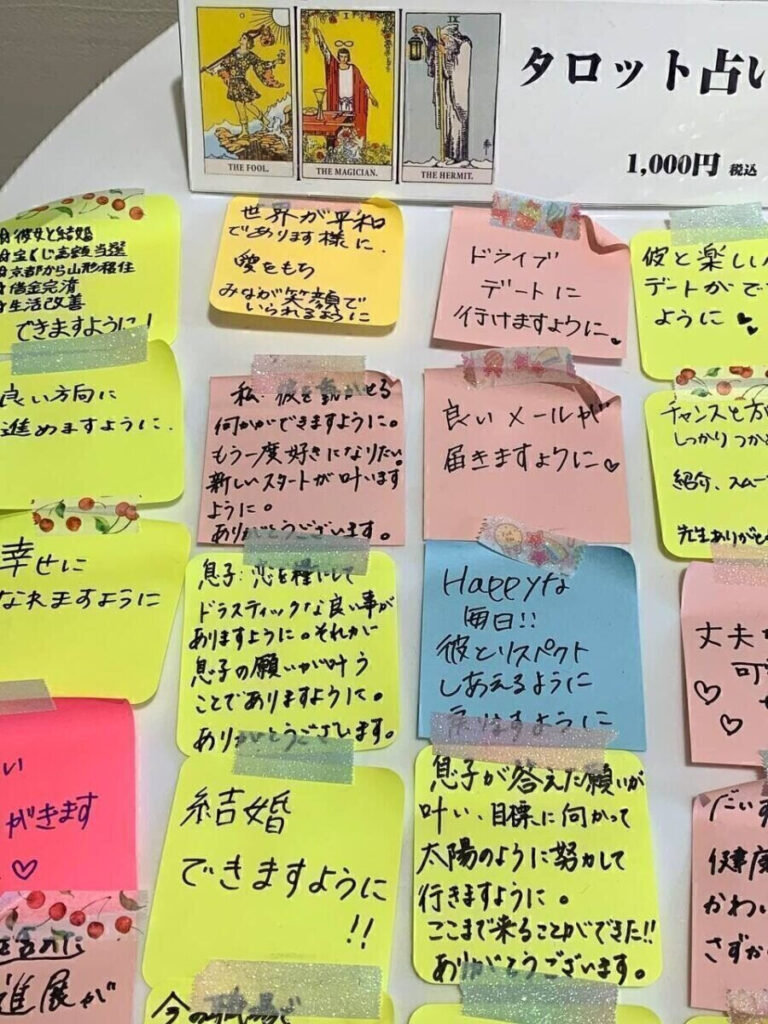 THE FOOL.
THE MAGICIAN.
IX
THE HERMIT.
タロット占い
1,000円 税込
彼女と結婚
宝くじ高額当選
京都から山形移住
借金完済
生活改善
できますように!
世界が平和
であります様に.
愛をもち
みなが笑顔で
いられるように
ドライブ
デートに
行けますように
彼と楽しい
デートがで
ように
良い方向に
進めますように.
私:彼を動かせる
何かができますように。
もう一度好きになりたい。
新しいスタートが叶います
ように。
ありがとうございます。
良いメールが
届きますように♡
チャンスと方
しっかりつか
紹介、スムー
先生ありがと
幸せに
なれますように
息子:恋を
ドラスティックな良い事が
ありますように。それが
息子の願いが叶う
ことでありますように。
ありがとうございます。
Happyな
毎日!!
彼とリスペクト
しあえるように
ますように
丈夫
可
い
がきます
♡
結婚
できますように
!!
息子が答えた願いが
叶い、目標に向かって
太陽のように努力して
行きますように。
ここまで来ることができた!!
ありがとうございます。
だいす
健康
かわい
さずか
進展が
今の